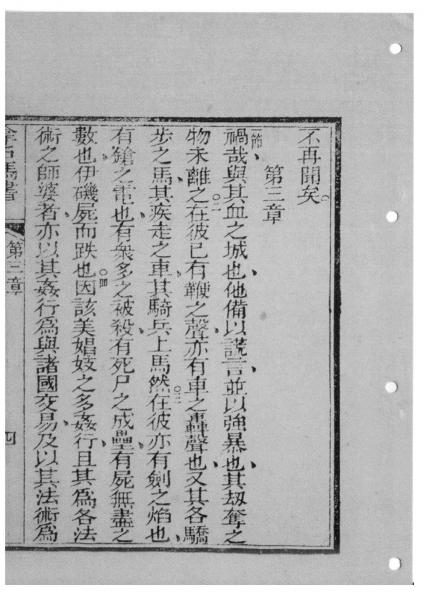 不再聞矣。
第三章
一節禍哉與其血之城也他備以謊言並以強暴也其刼奪之
物未離之在彼已有鞭之聲亦有車之轟聲也又其各驕
步之馬其疾走之車其騎兵上馬然在彼亦有劍之焰也
有鎗之電也有衆多之被殺有死尸之成壘有屍無盡之
數也伊磯屍而跌也因該美娼妓之多姦行且其爲各法
術之師婆者亦以其姦行爲與諸國交易及以其法術爲
第三章 四